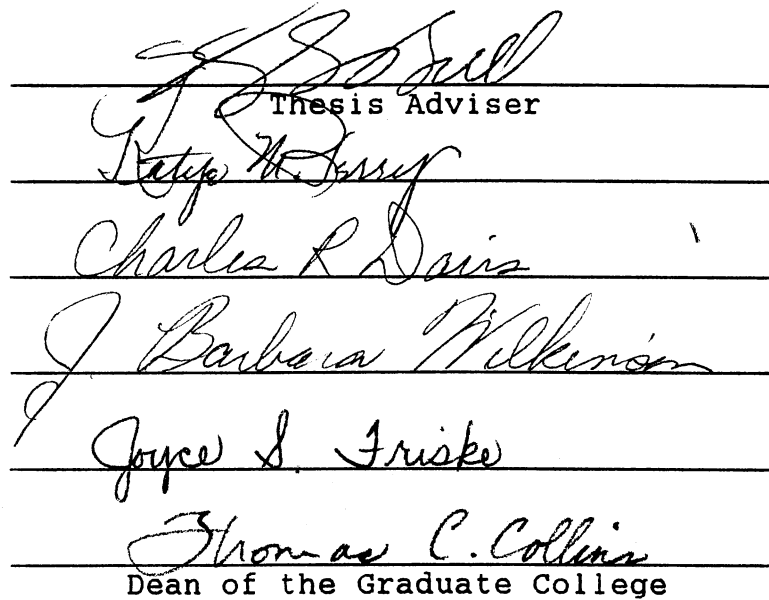 Thesis Adviser
Katye M. Perry
Charles R Davis
J Barbara Wilkinson
Joyce S. Friske
Thomas C. Collins
Dean of the Graduate College